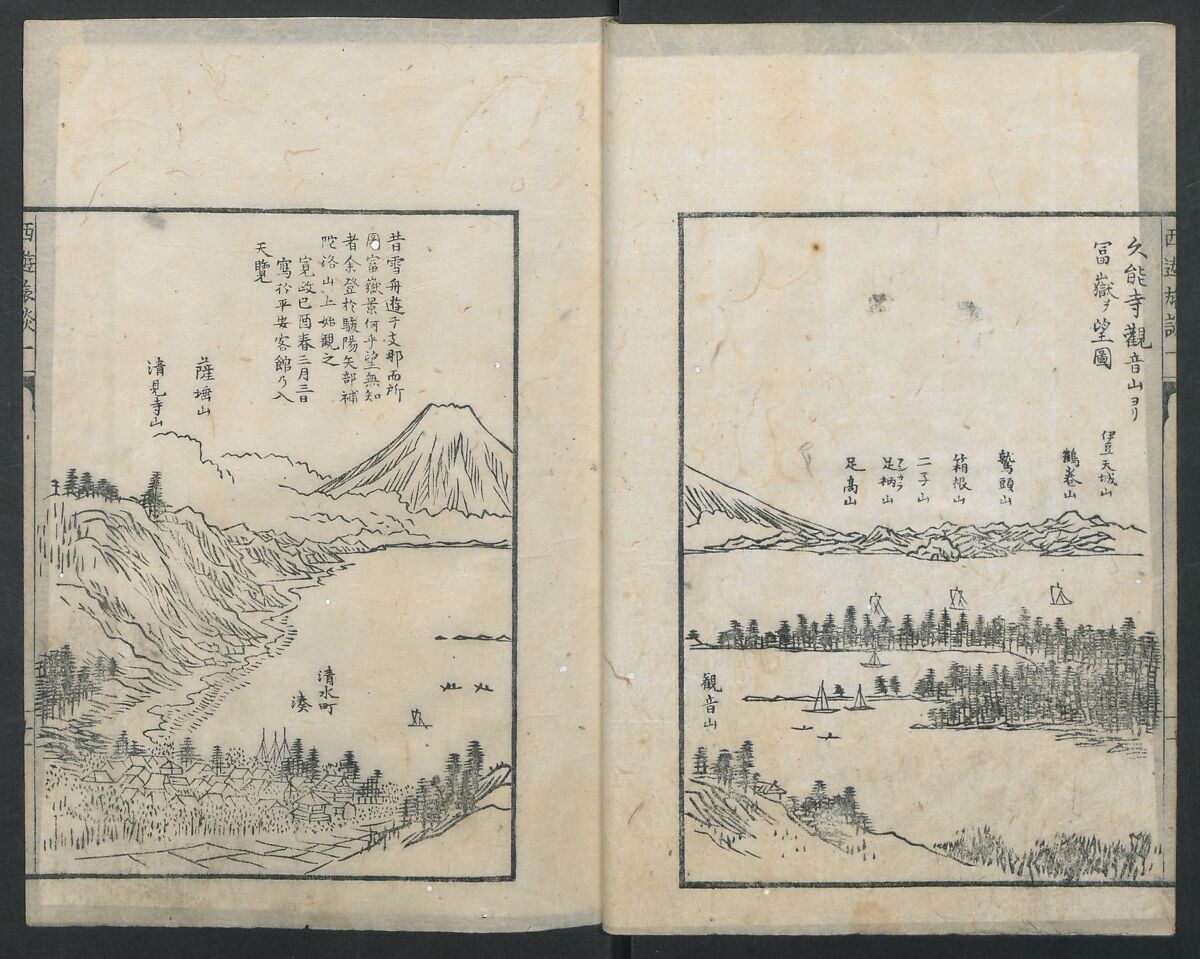 久能寺觀音山ヨリ
冨嶽ヲ望圖
伊豆天城山
鶴巻山
鷲頭山
箱根山
二子山
足柄山
アシカラ
足高山
観音山
西遊旅譚一
昔雪舟遊于支那而所
圖富嶽景何乎望無知
者余登於駿陽矢部補
陀洛山上始観之
寛政已酉春三月三日
寫於平安客館乃入
天覽
薩埵山
清見寺山
清水町
湊